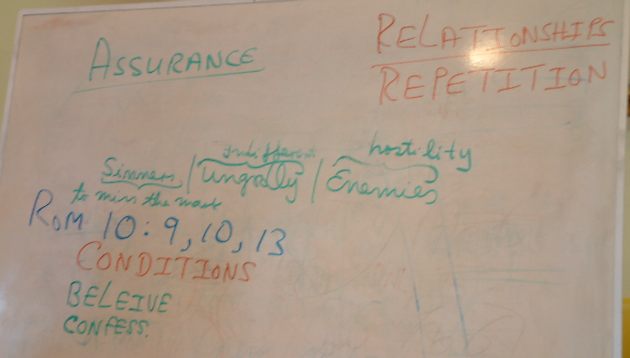 ASSURANCE
RELATIONSHIPS
REPETITION
indifferent hostility
Sinners / Ungodly / Enemies
to miss the mark
ROM 10:9,10,13
CONDITIONS
BELEIVE
CONFESS.